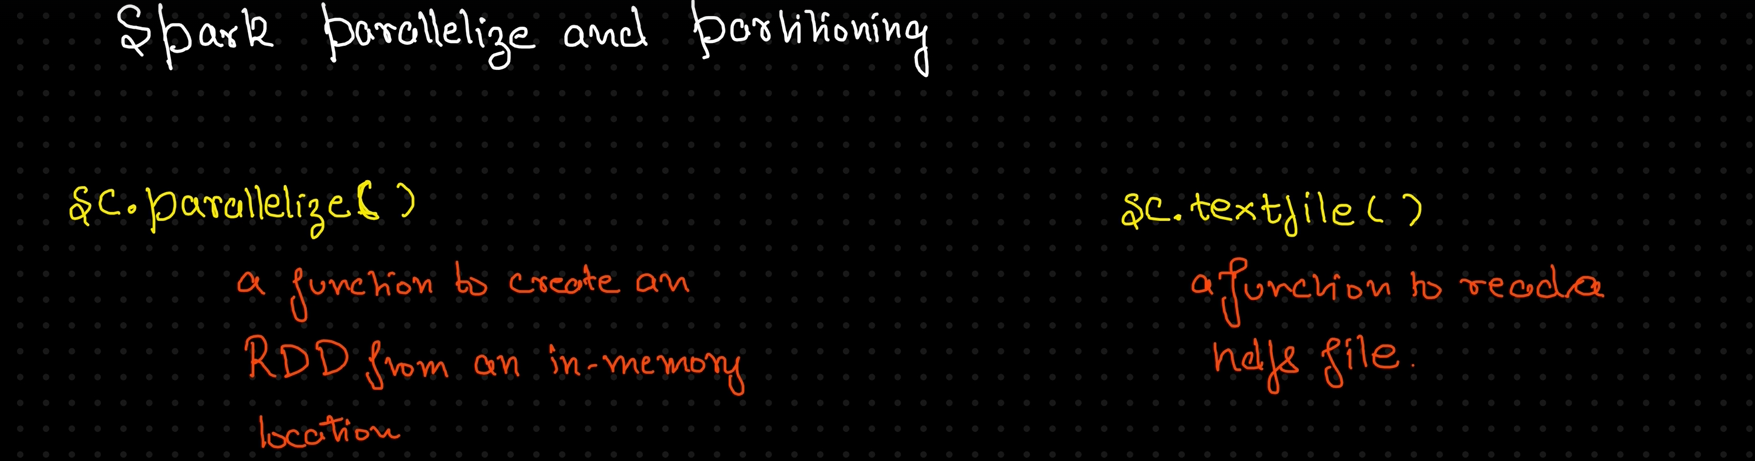 Spark parallelize and partitioning
sc.parallelize()
a function to create an
RDD from an in-memory
location
sc.textfile()
a function to read a
hdfs file.